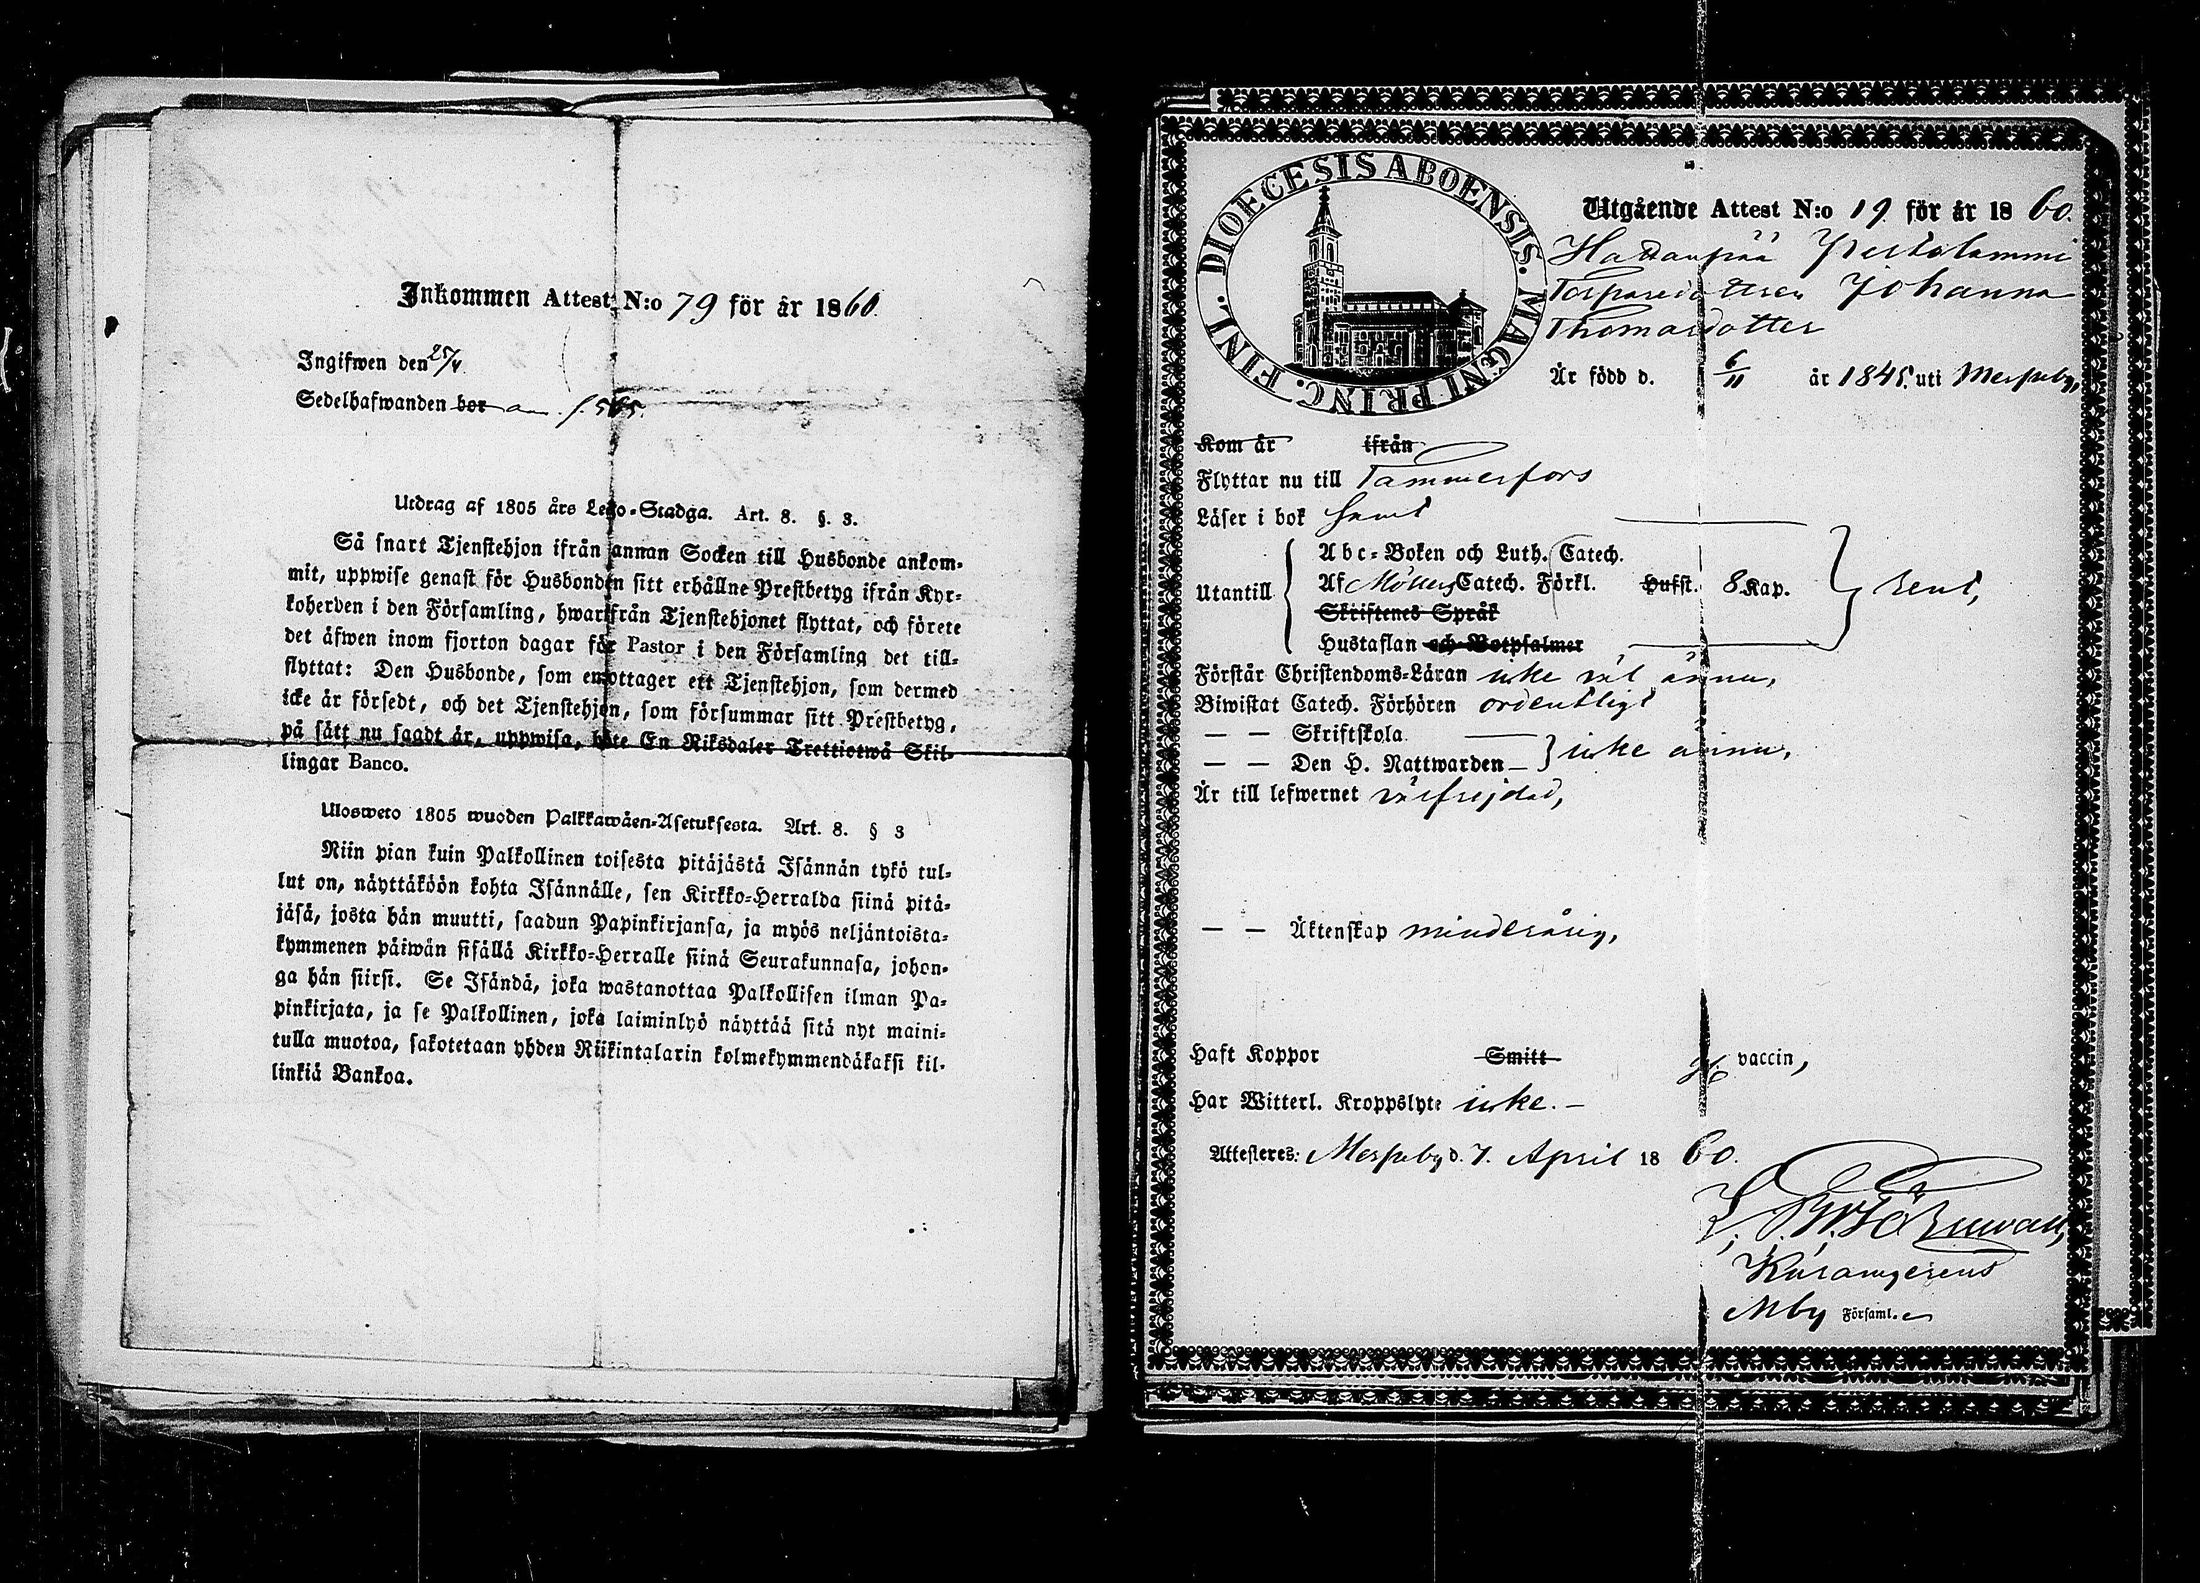 Inkommen Attest N:o 79 för år 1860.
Ingifwen den 25/4
Sedelhafwanden bor an. f. 565.
Utdrag af 1805 års Lego-Stadga. Art. 8. §. 3.
Så snart Tjenstehjon ifrån annan Socken till Husbonde ankom-
mit, uppwise genast för Husbonden sitt erhållne Prestbetyg ifrån Kyr-
koherden i den Församling, hwarifrån Tjenstehjonet flyttat, och förete
det äfwen inom fjorton dagar för Pastor i den Församling det till-
flyttat: Den Husbonde, som emottager ett Tjenstehjon, som dermed
icke är försedt, och det Tjenstehjon, som försummar sitt Prestbetyg,
på sätt nu sagdt är, uppwisa, böte En Riksdaler Trettiotwå Skil-
lingar Banco.
Ulosweto 1805 wuoden Palkkawäen-Asetuksesta. Art. 8. § 3
Niin pian kuin Palkollinen toisesta pitäjästä Isännän tykö tul-
lut on, näyttäköön kohta Isännälle, sen Kirkko-Herralda siinä pitä-
jäsä, josta hän muutti, saadun Papinkirjansa, ja myös neljäntoista-
kymmenen päiwän sisällä Kirkko-Herralle siinä Seurakunnasa, johon-
ga hän siirsi. Se Isändä, joka wastanottaa Palkollisen ilman Pa-
pinkirjata, ja se Palkollinen, joka laiminlyö näyttää sitä nyt maini-
tulla muotoa, sakotetaan yhden Riikintalarin kolmekymmendäkaksi kil-
linkiä Bankoa.
FINL. DIOECESIS ABOENSIS. MAGNI PRINC.
Utgående Attest N:o 19 för år 1860.
Hattanpää
Torparedottren Johanna
Thomasdotter
Är född d. 6/11 år 1845. uti Messuby,
Kom år ifrån
Flyttar nu till Tammerfors
Läser i bok
Abc-Boken och Luth. Catech.
Utantill Af Möllers Catech. Förkl. Hufst. 8 Kap. rent,
Skriftenes Språk
Hustaflan och Botpsalmer
Förstår Christendoms-Läran icke väl ännu,
Biwistat Catech. Förhören ordentligt
— — Skriftskola —
— — Den H. Nattwarden — icke ännu,
Är till lefwernet välfrejdad,
— — Äktenskap minderårig,
Haft Koppor Smitt vaccin,
Har Witterl. Kroppslyte icke. —
Attesteres: Messuby d. 7. April 1860.
Mby Församl.